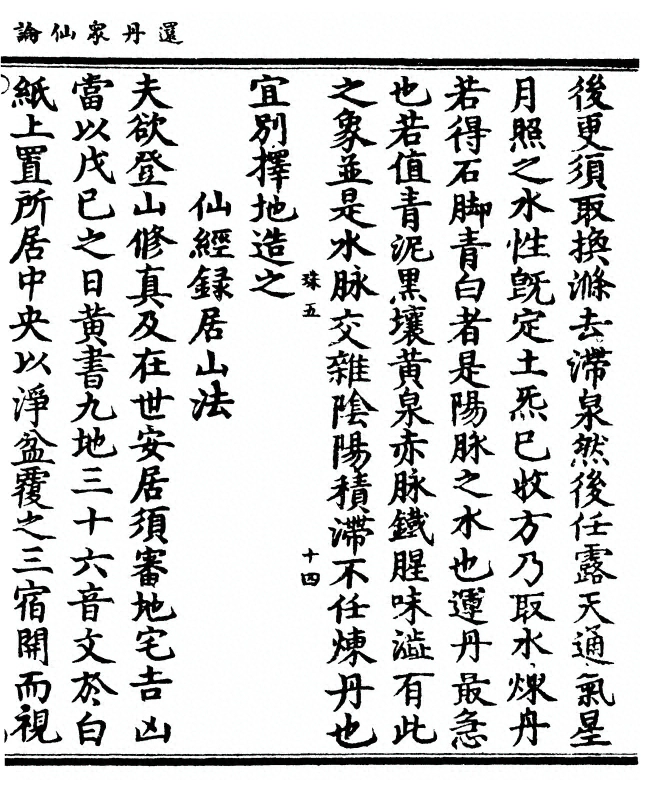 還丹衆仙論
後更須取換滌去滯泉然後任露天通氣星
月照之水性旣定土炁巳收方乃取水煉丹
若得石脚青白者是陽脉之水也運丹最急
也若值青泥黑壤黃泉赤脉鐵腥味澁有此
之象並是水脉交雜陰陽積滯不任煉丹也
珠五
十四
宜別擇地造之
仙經録居山法
夫欲登山修真及在世安居須審地宅吉凶
當以戊巳之日黃書九地三十六音文於白
紙上置所居中央以淨盆覆之三宿開而視